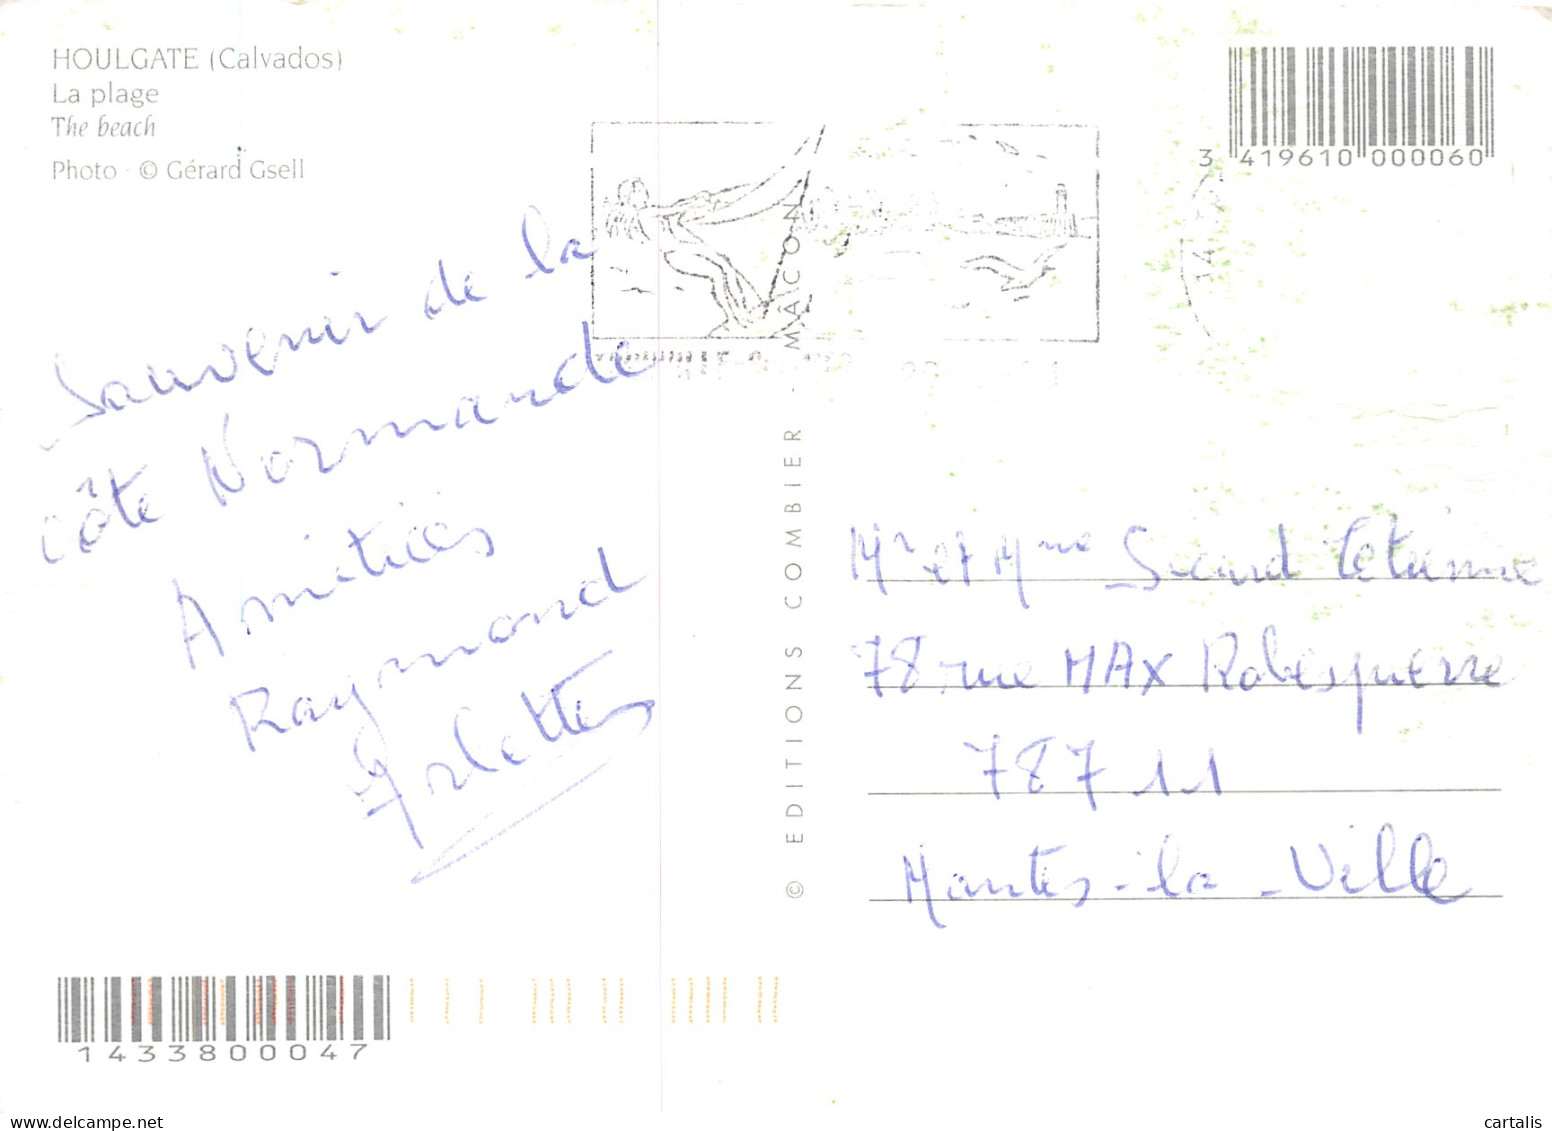 HOULGATE (Calvados)
La plage
The beach
Photo · © Gérard Gsell
3 419610 000060
Souvenir de la
côte Normande
Amitiés
Raymond
Arlette
© EDITIONS COMBIER - MÂCON
Mr et Mme Etienne
78 rue MAX Robespierre
78711
Mantes-la-Ville
1433800047
cartalis
www.delcampe.net